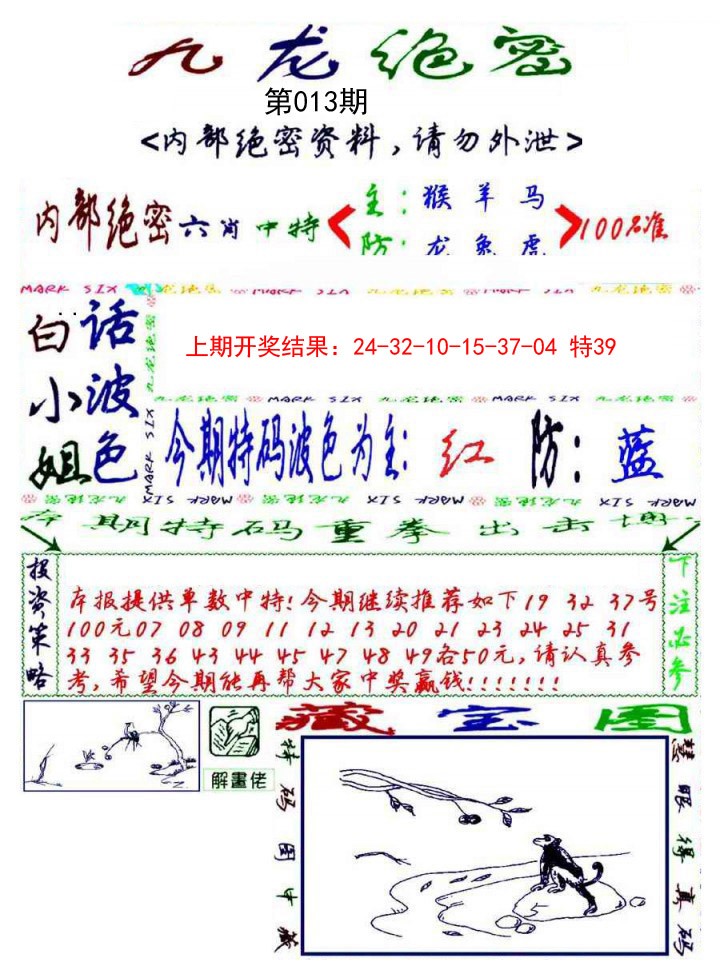 九龙绝密
第013期
<内部绝密资料,请勿外泄>
内部绝密六肖中特
主:猴羊马
防:龙兔虎
100%准
MARK SIX 九龙绝密 MARK SIX 九龙绝密 MARK SIX 九龙绝密
白话小波姐色
九龙绝密
MARK SIX
上期开奖结果：24-32-10-15-37-04 特39
九龙绝密 MARK SIX 九龙绝密 MARK SIX 九龙绝密
今期特码波色为主:红 防:蓝
九龙绝密 MARK SIX 九龙绝密 MARK SIX 九龙绝密 MARK SIX
本期特码重拳出击博
投资策略
本报提供单数中特!今期继续推荐如下19 32 37号
100元07 08 09 11 12 13 20 21 23 24 25 31
33 35 36 43 44 45 47 48 49各50元,请认真参
考,希望今期能再帮大家中奖赢钱!!!!!!!
下注必参
解畫佬
藏宝图
特码图中藏
慧眼得真码